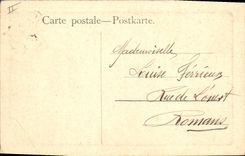 II
Carte postale—Postkarte.
Mademoiselle
Louise Ferrieux
Rue de l'ouest
Romans